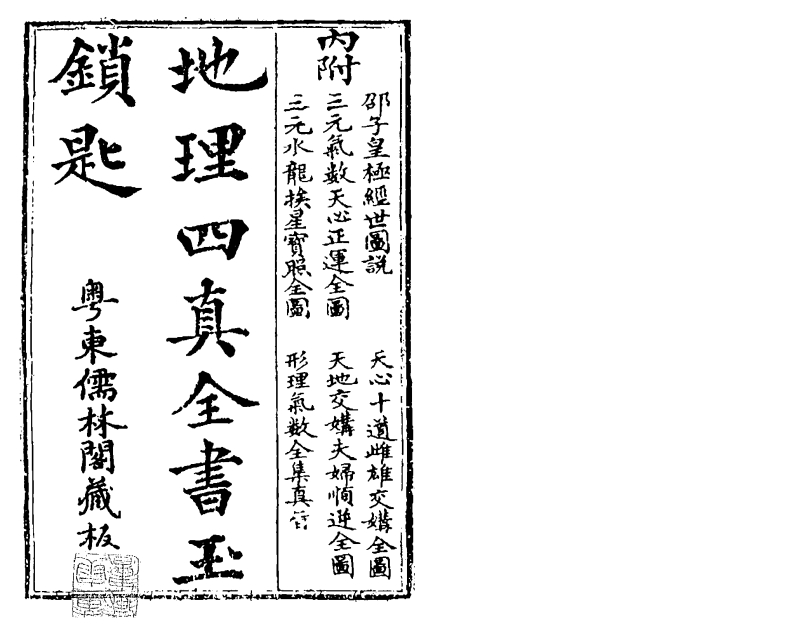 內附
邵子皇極經世圖説
天心十道雌雄交媾全圖
三元氣数天心正運全圖
天地交媾夫婦順逆全圖
三元水龍挨星寶照全圖
形理氣数全集真
地理四真全書玉
鎖匙
粤東儒林閣藏板